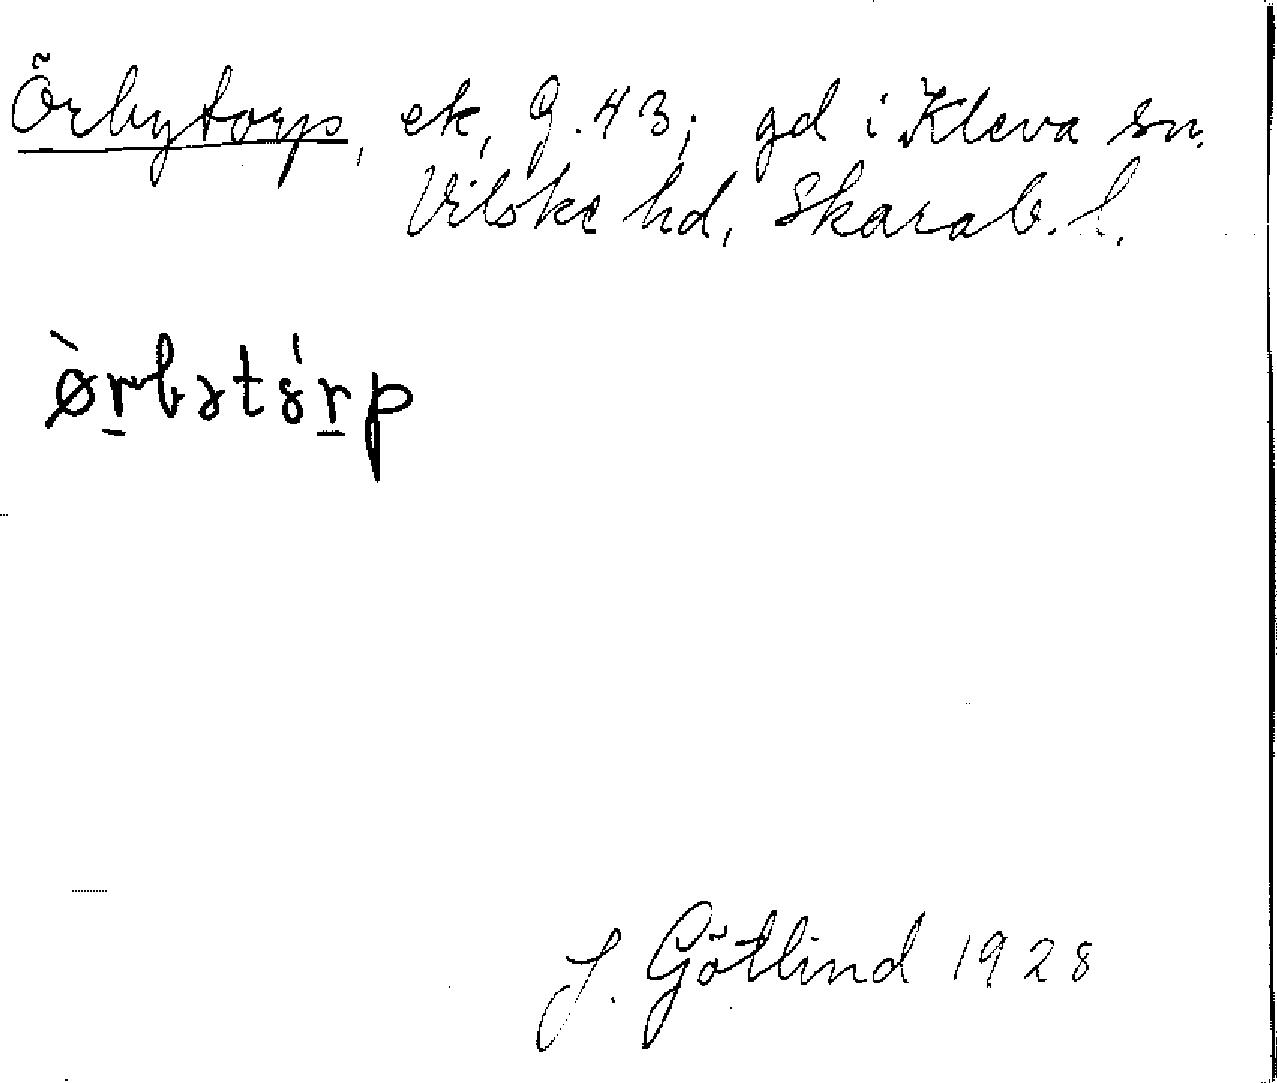 Örbytorp, ek, G. 43; gd i Kleva sn.
Vilske hd, Skarab. l.
ø̀r̲bətȯ́r̲p
J. Götlind 1928